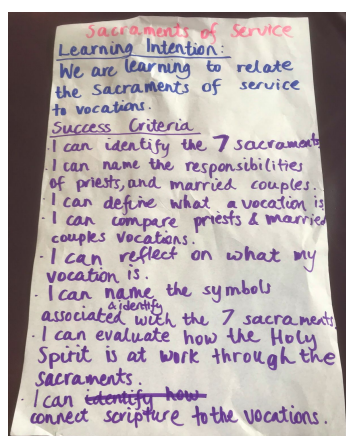 Sacraments of Service
Learning Intention:
We are learning to relate
the sacraments of service
to vocations.
Success Criteria
· I can identify the 7 sacraments
· I can name the responsibilities
of priests, and married couples.
· I can define what a vocation is
· I can compare priests & married
couples vocations.
· I can reflect on what my
vocation is.
· I can name the symbols
& identify
associated with the 7 sacraments
· I can evaluate how the Holy
Spirit is at work through the
sacraments.
· I can identify how
connect scripture to the vocations.